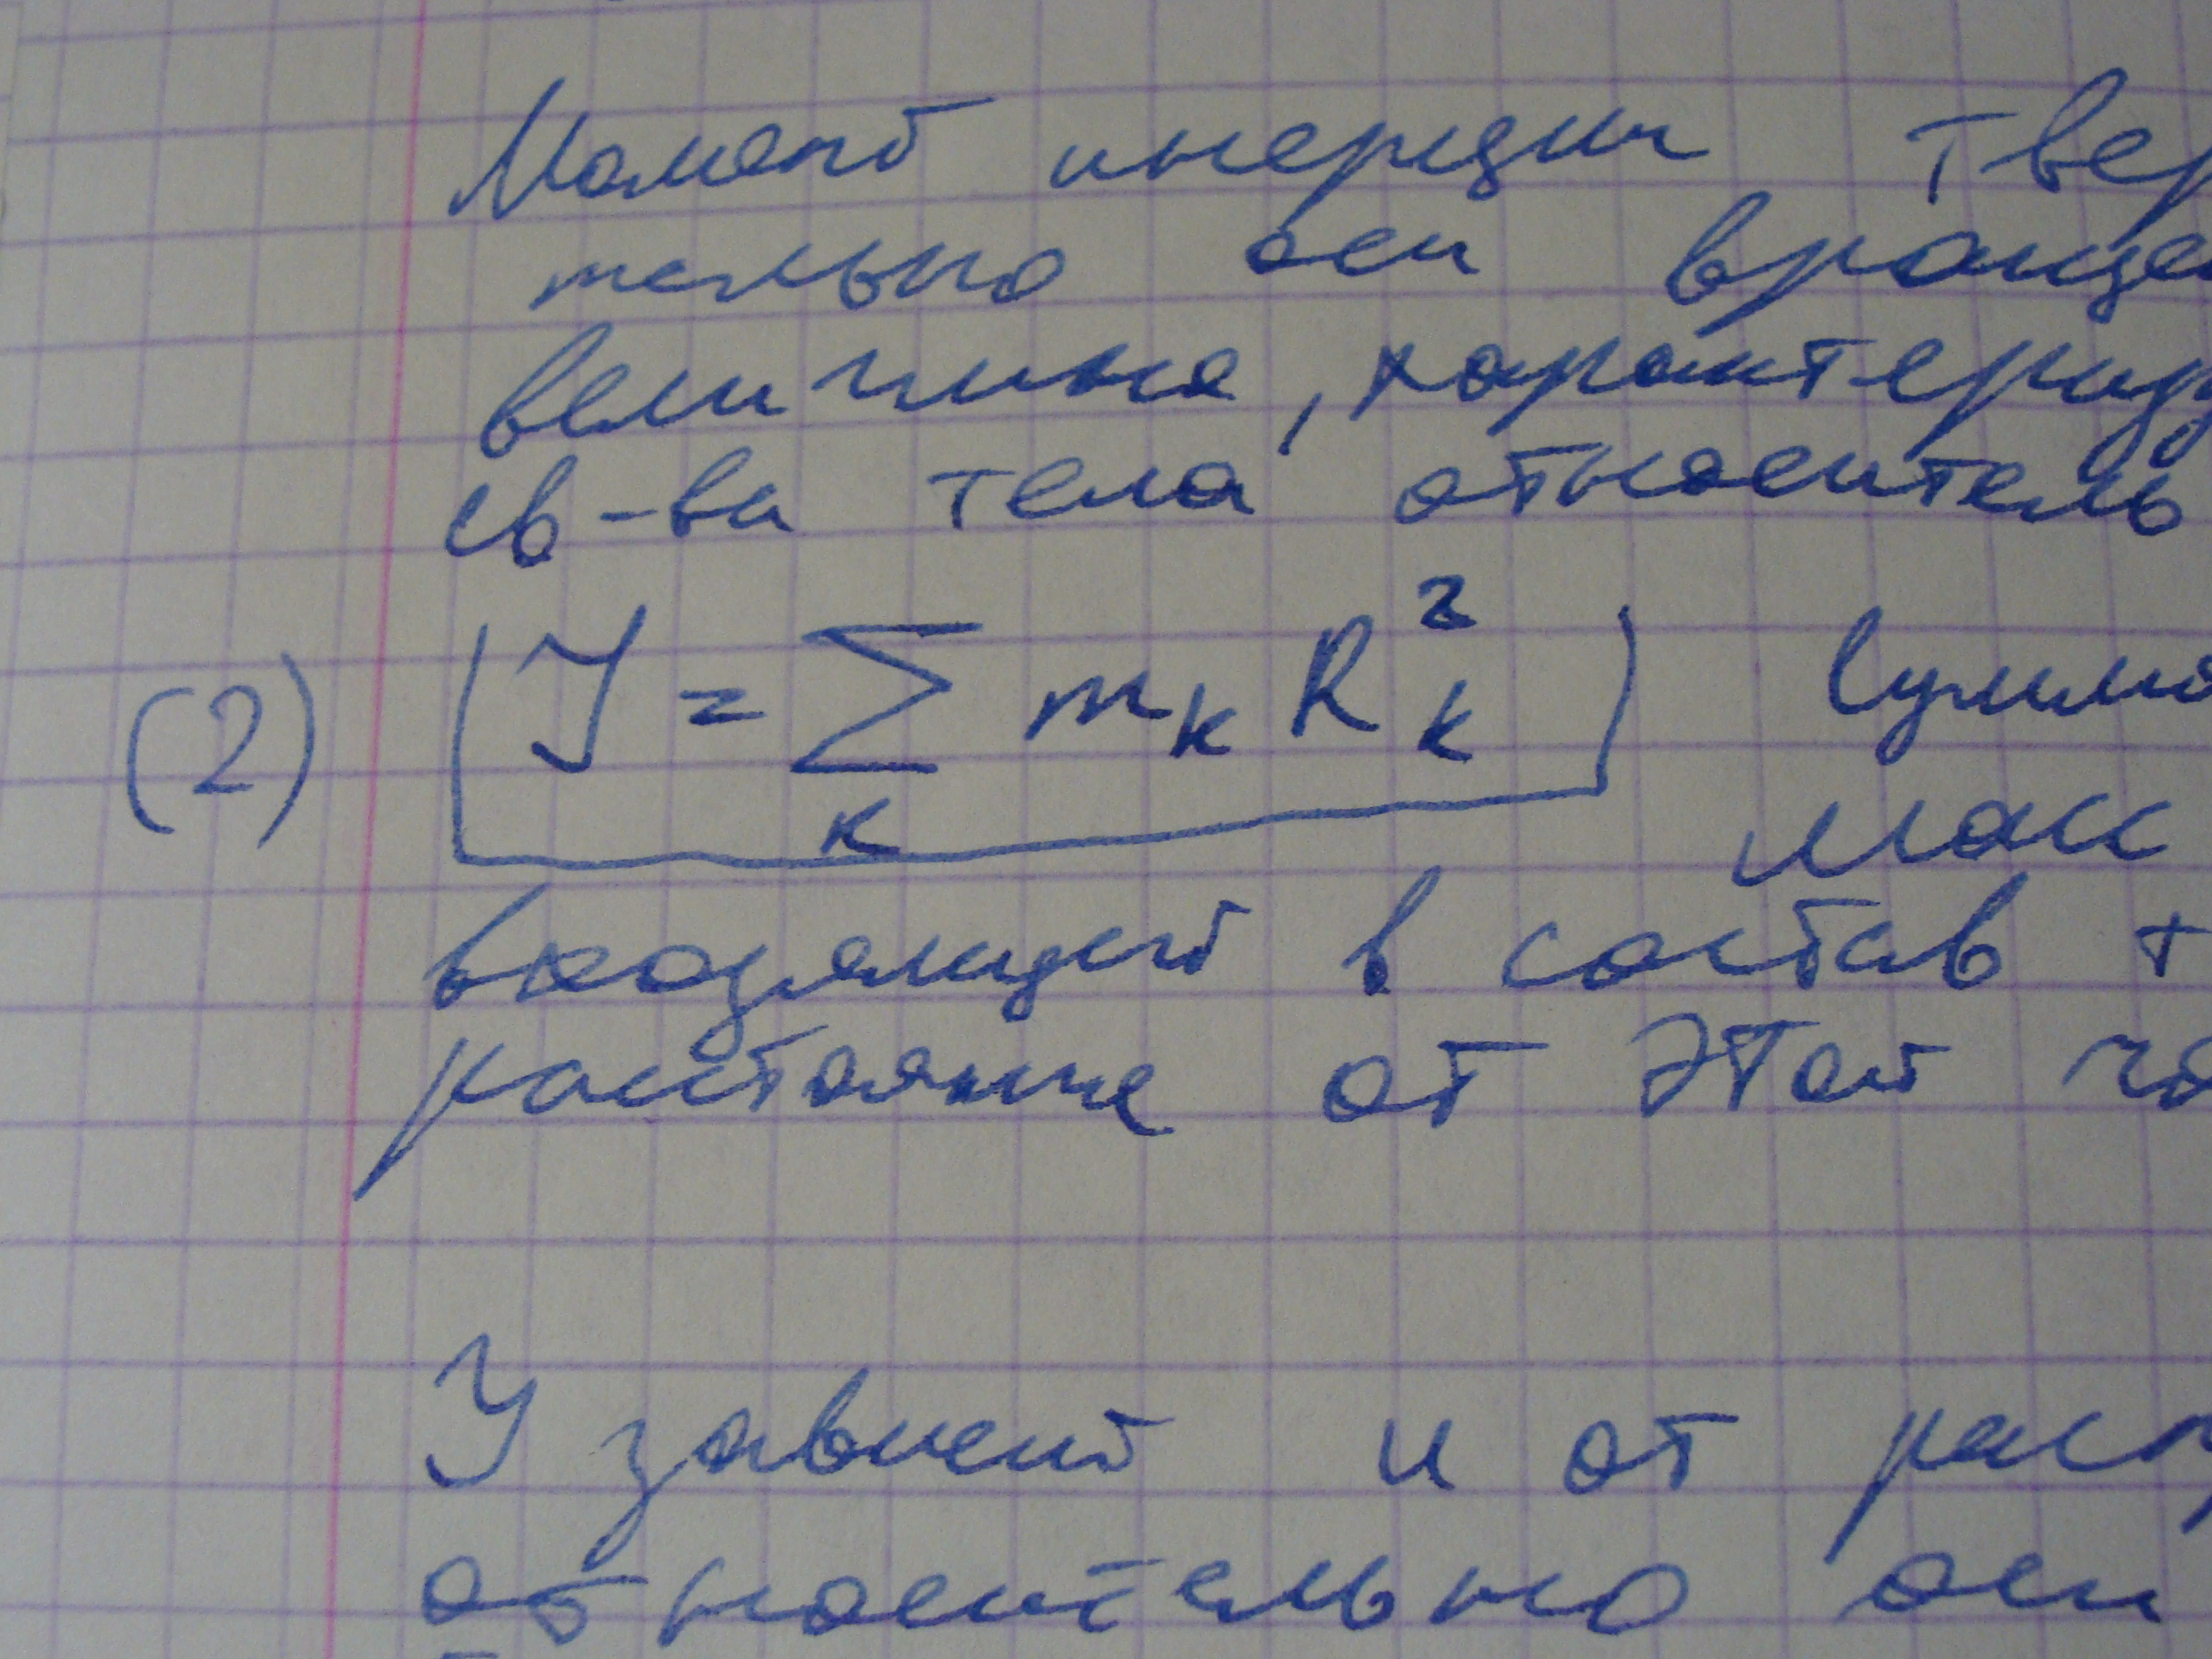 Момент инерции твер
тельно оси враще
величина, характериз
св-ва тела относитель
(2) J = ∑ₖ mₖ Rₖ² Сумма
масс
входящей в состав т
расстояние от этой ча
J зависит и от расп
относительно оси